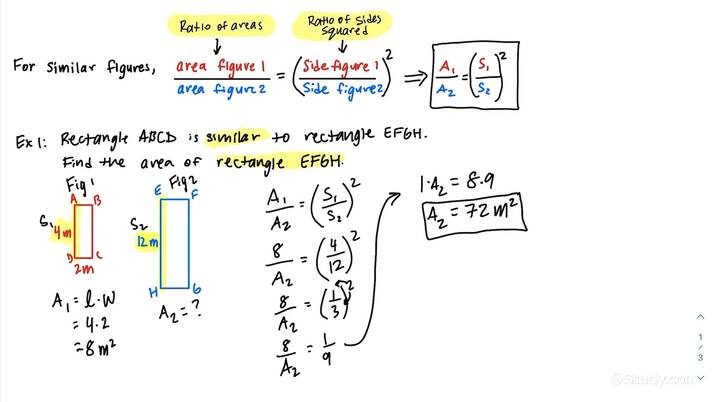 Ratio of areas
Ratio of Sides Squared
For Similar figures, area figure 1 / area figure 2 = (Side figure 1 / Side figure 2)² ⇒ A₁/A₂ = (S₁/S₂)²
Ex 1: Rectangle ABCD is similar to rectangle EFGH.
Find the area of rectangle EFGH.
Fig 1
A B
S₁
4m
D C
2m
A₁ = l·W
= 4·2
= 8 m²
Fig 2
E F
S₂
12m
H G
A₂ = ?
A₁/A₂ = (S₁/S₂)²
8/A₂ = (4/12)²
8/A₂ = (1/3)²
8/A₂ = 1/9
1·A₂ = 8·9
A₂ = 72 m²
1
/
3
©Study.com